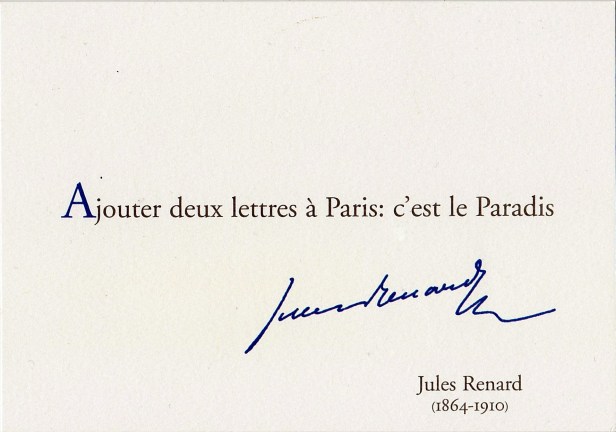 Ajouter deux lettres à Paris: c'est le Paradis
Jules Renard
Jules Renard
(1864-1910)